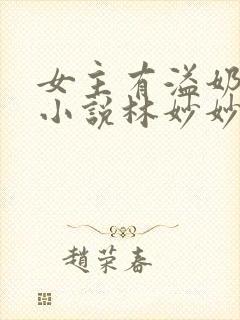 女主有溢奶
小说林妙妙
趙荣春